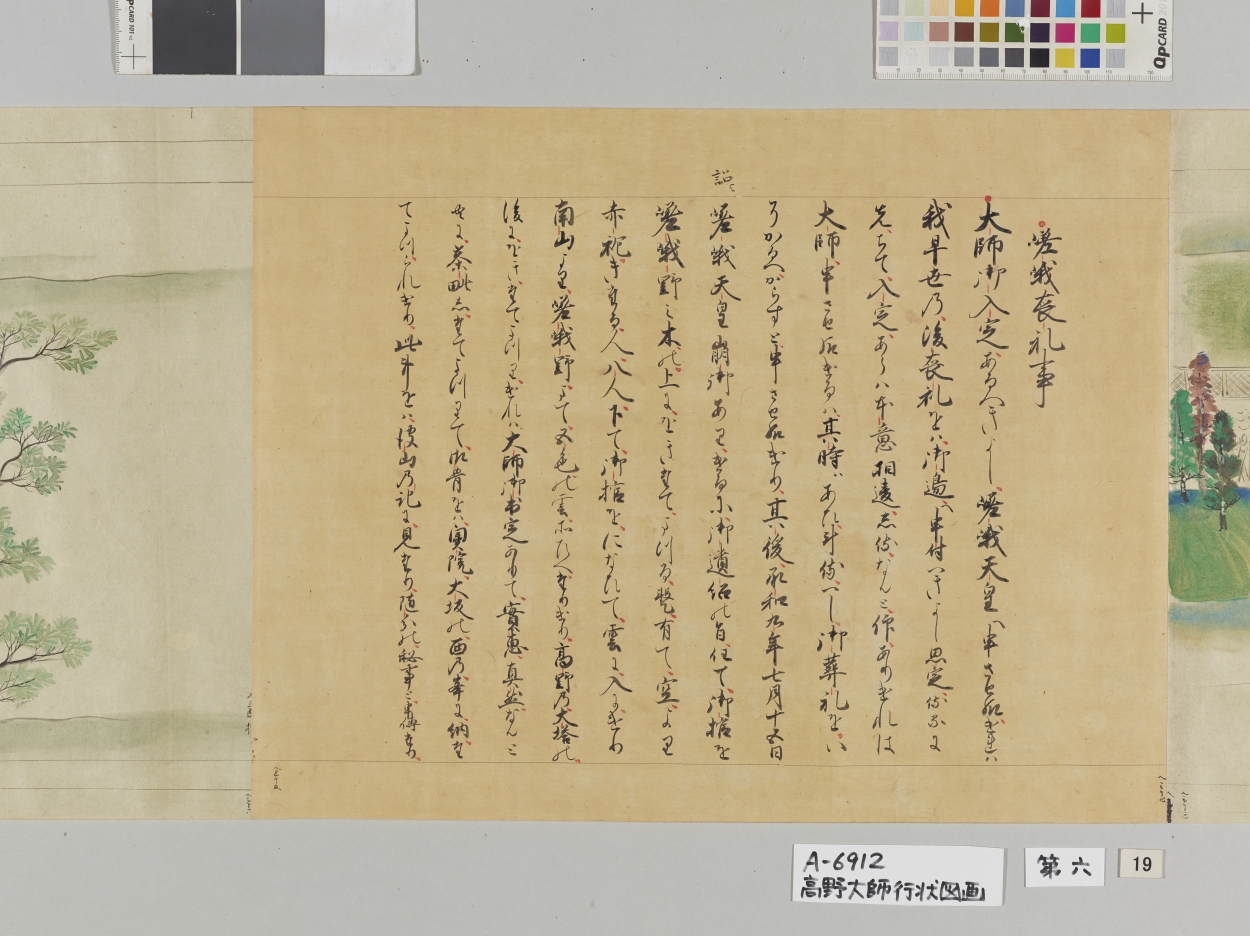 嵯峨喪礼事
大師御入定あるへきよし嵯峨天皇へ申させ給けれハ
我早世乃後喪礼をハ御邉へ申付へきよし思定侍るに
先たて入定あらハ本意相違し侍なんと仰ありけれは
大師申させ給けるハ其時ハあひ計侍へし御葬礼をハ
うかゝへからすと申させ給けり其後承和九年七月十五日
嵯峨天皇崩御ありけるに御遺詔の旨任て御棺を
詔
嵯峨野之木の上にをきたてまつる暫有て空より
赤衣きたる人八人下て御棺をになひて雲に入にけり
南山より嵯峨野まて五色の雲たなひへたりけり高野乃大塔の
後にをきたてまつりけれハ大師御出定ありて實恵真然なんと
共に荼毗したてまつりて御骨をハ奥院大坂の西乃峯に納た
てまつられけり此事をハ彼山乃記に見えたり随分の秘事と申傳たり
A-6912
高野大師行状図画
第六
19
QPCARD 101
QPCARD 201